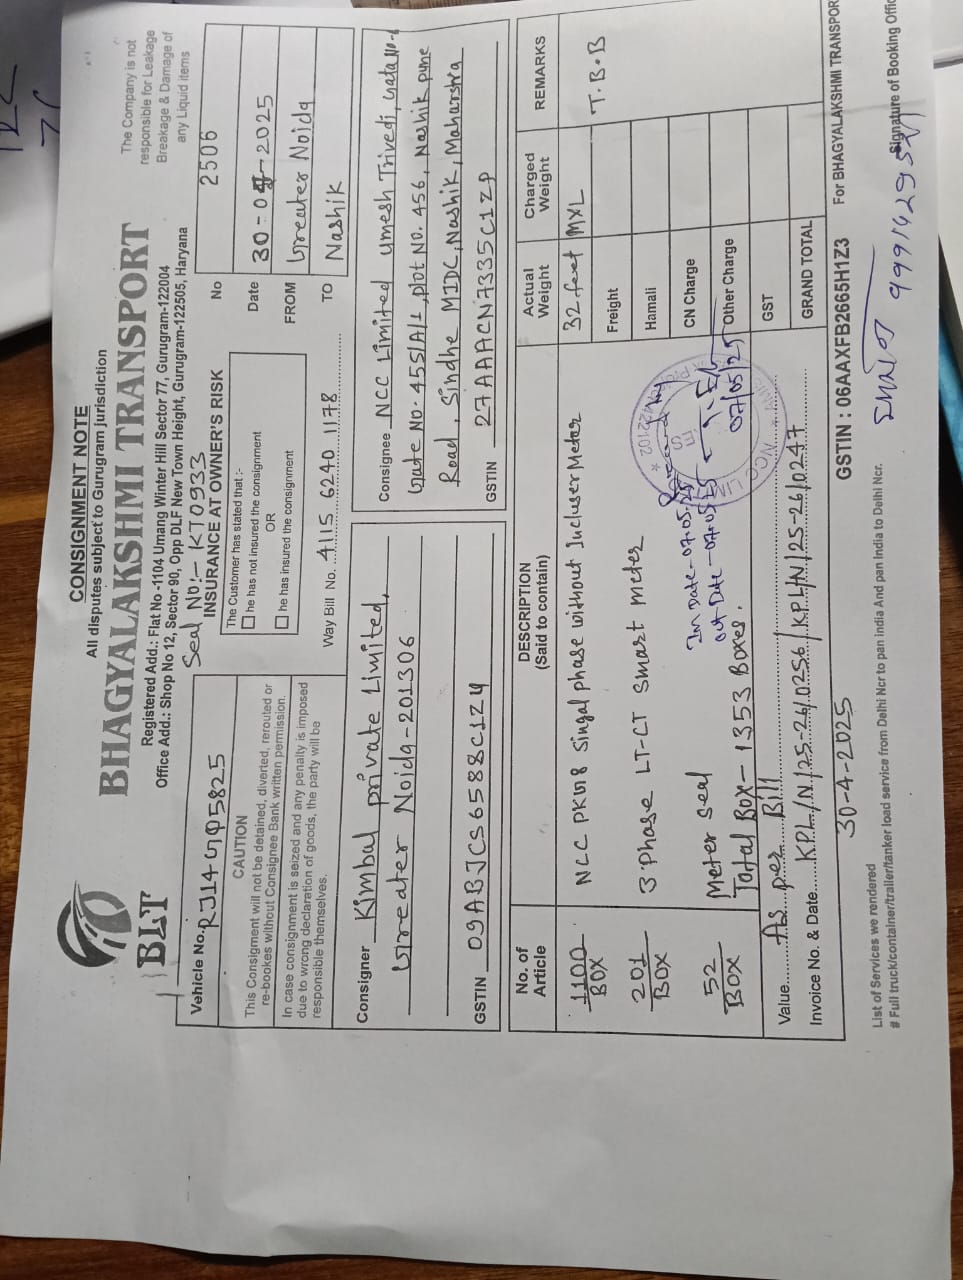 CONSIGNMENT NOTE
All disputes subject to Gurugram jurisdiction
BHAGYALAKSHMI TRANSPORT
BL&T
Registered Add.: Flat No -1104 Umang Winter Hill Sector 77, Gurugram-122004
Office Add.: Shop No 12, Sector 90, Opp DLF New Town Height, Gurugram-122505, Haryana
The Company is not
responsible for Leakage
Breakage & Damage of
any Liquid items
Vehicle No. RJ14GQ5825
Seal No:- KT0933
INSURANCE AT OWNER'S RISK
No 2506
CAUTION
This Consigment will not be detained, diverted, rerouted or
re-bookes without Consignee Bank written permission.
In case consignment is seized and any penalty is imposed
due to wrong declaration of goods, the party will be
responsible themselves.
The Customer has stated that :-
he has not insured the consignment
OR
he has insured the consignment
Way Bill No. 4115 6240 1178
Date 30-04-2025
FROM Greater Noida
TO Nashik
Consigner Kimbal private Limited,
Greater Noida-201306
GSTIN 09ABJCS6588C1Z4
Consignee NCC Limited Umesh Trivedi, Gata No-
Gate No. 455/A/1, plot No. 456, Nashik pune
Road, Sindhe MIDC, Nashik, Maharshtra
GSTIN 27AAACN7335C1ZP
No. of Article DESCRIPTION (Said to contain) Actual Weight Charged Weight REMARKS
1100 BOX NCC PKing Singal phase without Incluser Meter 32 feet MXL T.B.B
201 BOX 3-Phase LT-CT Smart meter
52 BOX Meter Seal
Total Box- 1353 Boxes.
In Date-07.05.25
Out Date-07.05.25
07/05/25
NCC LIM
422102
Freight
Hamali
CN Charge
Other Charge
GST
GRAND TOTAL
Value As per Bill
Invoice No. & Date KPL/N/25-26/0256/KPL/N/25-26/0247
30-4-2025
GSTIN : 06AAXFB2665H1Z3
For BHAGYALAKSHMI TRANSPOR
List of Services we rendered
# Full truck/container/trailer/tanker load service from Delhi Ncr to pan india And pan India to Delhi Ncr.
Signature of Booking Offic